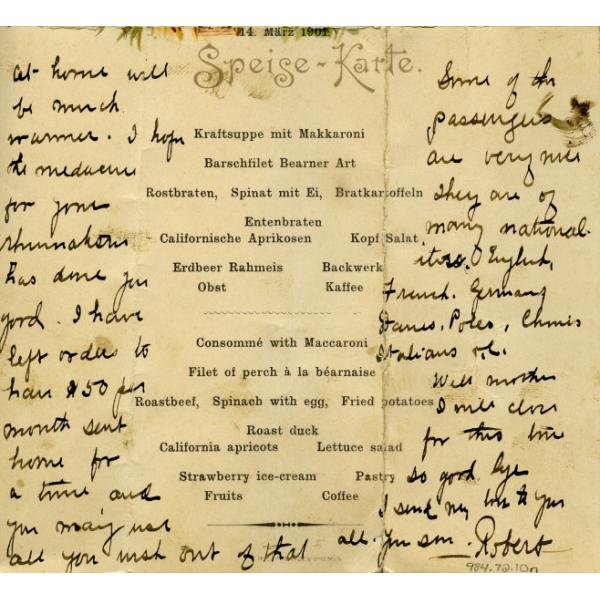 14. März 1901
Speise-Karte.
Kraftsuppe mit Makkaroni
Barschfilet Bearner Art
Rostbraten, Spinat mit Ei, Bratkartoffeln
Entenbraten
Californische Aprikosen Kopf Salat
Erdbeer Rahmeis Backwerk
Obst Kaffee
Consommé with Maccaroni
Filet of perch à la béarnaise
Roastbeef, Spinach with egg, Fried potatoes
Roast duck
California apricots Lettuce salad
Strawberry ice-cream Pastry
Fruits Coffee
at home will
be much
warmer. I hope
the medacine
for your
has done you
good. I have
left orders to
have $50 per
month sent
home for
a time and
you may use
all you wish out of that
Some of the
passengers
are very nice
They are of
many national-
ities. English,
French. Germans
Danes. Poles, Chinese
Italians
Well mother
I will close
for this time
so good bye
I send my love to you
all. Your son. Robert
984.72.10